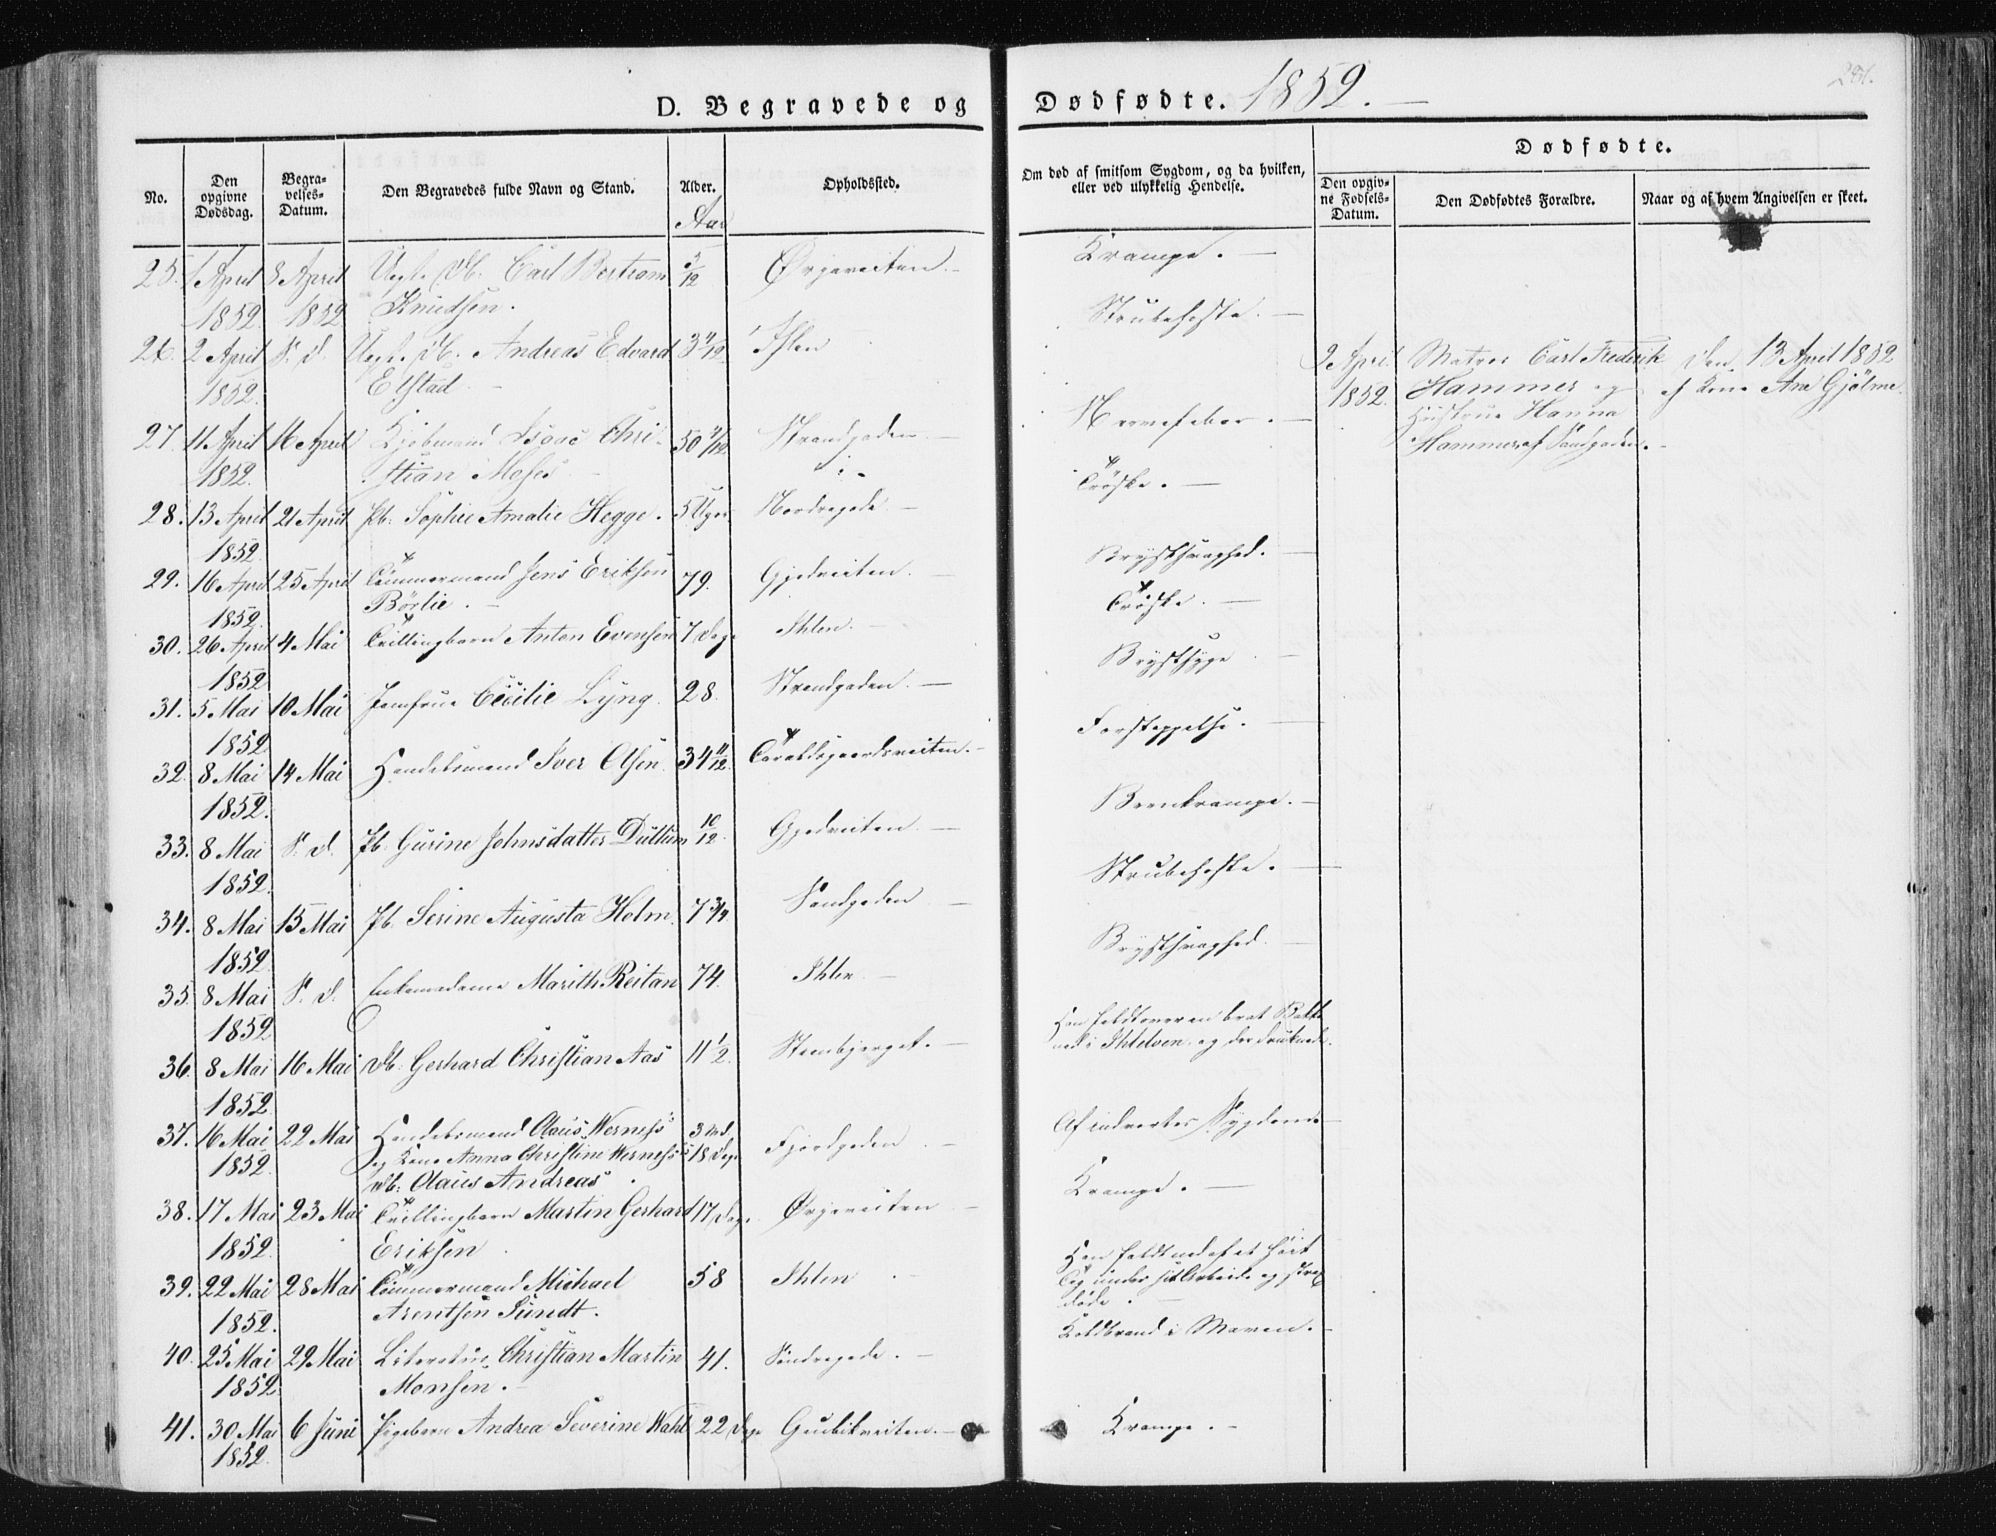 D. Begravede og Dødfødte. 1852.
281.
No.
Den opgivne Dødsdag.
Begravelses-Datum.
Den Begravedes fulde Navn og Stand.
Alder.
Aar
Opholdssted.
Om død af smitsom Sygdom, og da hvilken,
eller ved ulykkelig Hendelse.
Dødfødte.
Den opgivne Fødsels-Datum.
Den Dødfødtes Forældre.
Naar og af hvem Angivelsen er skeet.
25. 1 April 8 April Uegt. Db. Carl Bertram 5/12 Ørjeveiten. Krampe.
1852 1852 Knudsen.
Strubehoste.
26. 2 April S. D. Uegt. Db. Andreas Edvard 3 11/12 Ihlen
1852. Elstad
2 April Matros Carl Frederik Den 13 April 1852
1852. Hammer og af Kone Ane Gjølme
Hustrue Hanna
Hammer af Sandgaden.
Nervefeber.
27. 11 April 16 April Kjøbmand Isaac Chri- 50 Strandgaden
1852. stian Moses
Trøske.
28. 13 April 21 April Pb. Sophie Amalie Hegge. 5 Uger Nordregade.
1852.
Brystsvaghed.
29. 16 April 25 April Tømmermand Jens Eriksen 79. Gjedveiten.
1852. Børlie.
Trøske.
30. 26 April 4 Mai Tvillingbarn Anton Evensen 7 Dage Ihlen.
1852
Brystsyge
31. 5 Mai 10 Mai Jomfrue Cecilie Lyng. 28. Strandgaden.
1852
Forstoppelse.
32. 8 Mai 14 Mai Handelsmand Iver Olsen 34 11/12. Taraldsgaardsveiten.
1852.
Barnkrampe.
33. 8 Mai S. D. Pb. Gurine Johnsdatter Dullum 10/12. Gjedveiten
1852.
Strubehoste.
34. 8 Mai 15 Mai Pb. Serine Augusta Holm. 7 3/4 Sandgaden
1852
Brystsvaghed.
35. 8 Mai S. D. Enkemadame Marith Reitan 74. Ihlen
1852
Han faldt over en brat Bakke
ned i Ihlelven og der druknede.
36. 8 Mai 16 Mai Db. Gerhard Christian Aas 11 1/2. Steenbjerget.
1852
37. 16 Mai 22 Mai Handelsmand Olaus Werness 3 Md. Fjordgaden Af indvortes Sygdom
1852. og Kone Anna Christine Werness's 18 Dage
Db: Olaus Andreas.
Krampe.
38. 17 Mai 23 Mai Tvillingbarn Martin Gerhard 17 Dage Ørjeveiten
1852. Eriksen
Han faldt ned af et høit
Tag under sit Arbeide og strax
døde.
39. 22 Mai 28 Mai Tømmermand Michael 58 Ihlen
1852. Arentsen Sundt.
Koldbrand i Maven.
40. 25 Mai 29 Mai Christian Martin 41. Søndregade.
1852 Monsen.
41. 30 Mai 6 Juni Pigebarn Andrea Severine Wahl 22 Dage Gubbikveiten. Krampe.
1852.